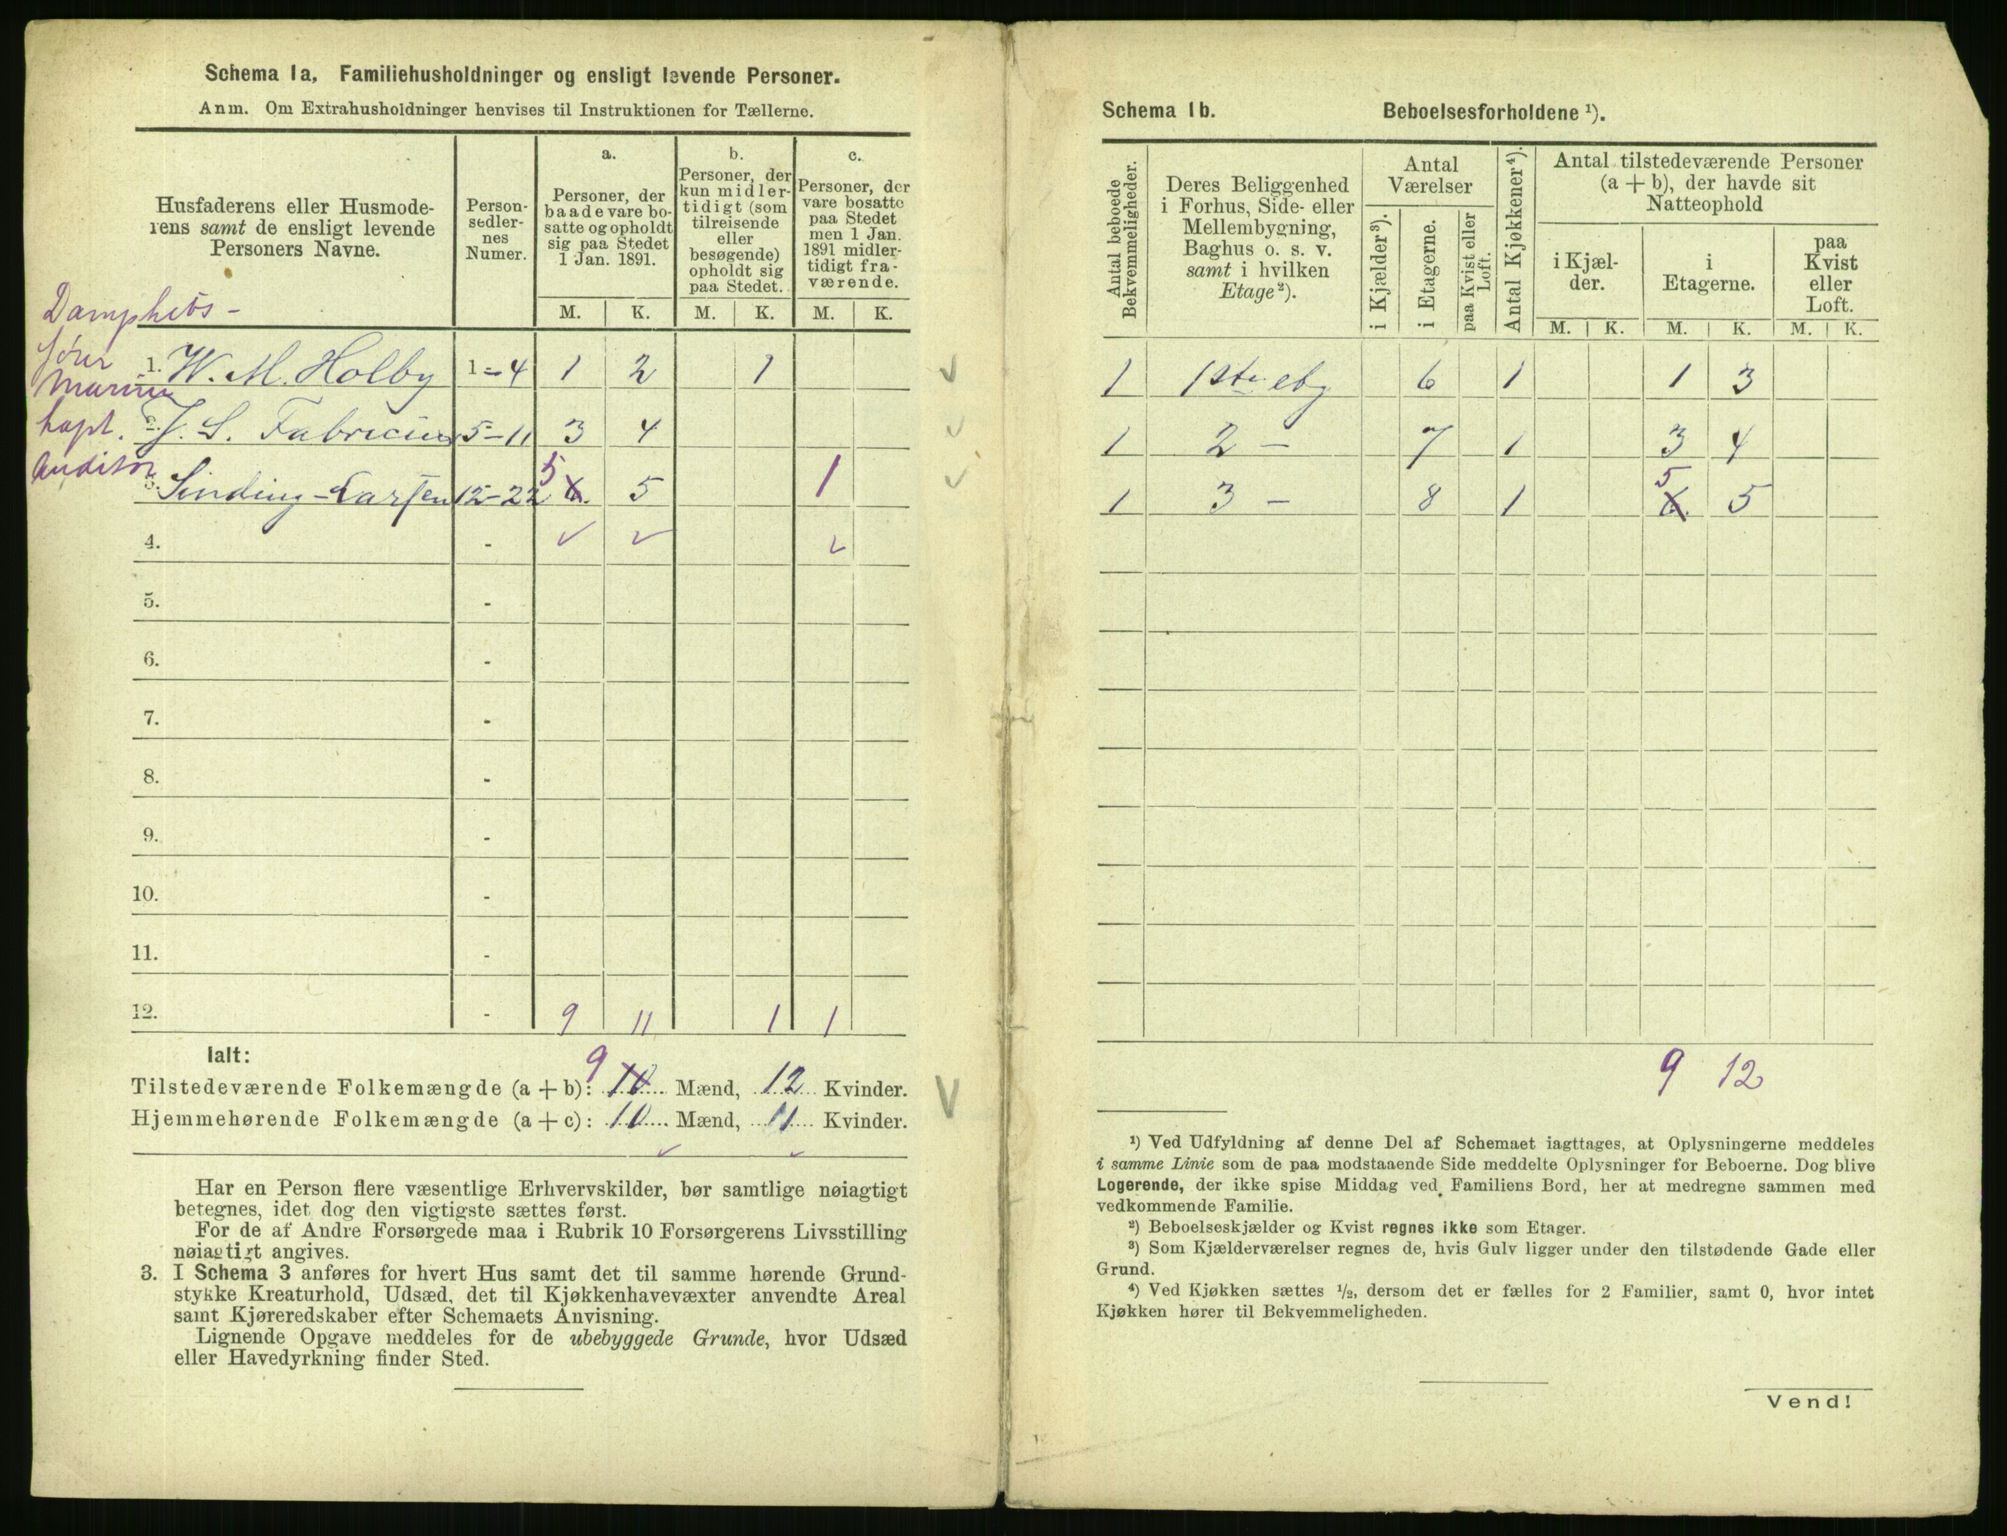 Schema 1a, Familiehusholdninger og ensligt levende Personer.
Anm. Om Extrahusholdninger henvises til Instruktionen for Tællerne.
Husfaderens eller Husmode-
rens samt de ensligt levende
Personers Navne.
Person-
sedler-
nes
Numer.
a.
Personer, der
baade vare bo-
satte og opholdt
sig paa Stedet
1 Jan. 1891.
b.
Personer, der
kun midler-
tidigt (som
tilreisende
eller
besøgende)
opholdt sig
paa Stedet.
c.
Personer, der
vare bosatte
paa Stedet
men 1 Jan.
1891 midler-
tidigt fra-
værende.
M. K. M. K. M. K.
Dampskibs-
fører
1. W. M. Holby 1-4 1 2 1
Marine
kapt.
2. J. S. Fabricius 5-11 3 4
Auditør
3. Sinding-Larsen 12-22 5 6. 5 1
4. -
5. -
6. -
7. -
8. -
9. -
10. -
11. -
12. - 9 11 1 1
Ialt:
Tilstedeværende Folkemængde (a + b): 9 10 Mænd, 12 Kvinder.
Hjemmehørende Folkemængde (a + c): 10 Mænd, 11 Kvinder.
Har en Person flere væsentlige Erhvervskilder, bør samtlige nøiagtigt
betegnes, idet dog den vigtigste sættes først.
For de af Andre Forsørgede maa i Rubrik 10 Forsørgerens Livsstilling
nøiagtigt angives.
3. I Schema 3 anføres for hvert Hus samt det til samme hørende Grund-
stykke Kreaturhold, Udsæd, det til Kjøkkenhavevæxter anvendte Areal
samt Kjøreredskaber efter Schemaets Anvisning.
Lignende Opgave meddeles for de ubebyggede Grunde, hvor Udsæd
eller Havedyrkning finder Sted.
Schema 1b. Beboelsesforholdene ¹).
Antal beboede
Bekvemmeligheder.
Deres Beliggenhed
i Forhus, Side- eller
Mellembygning,
Baghus o. s. v.
samt i hvilken
Etage²).
Antal
Værelser
i Kjælder³).
i Etagerne.
paa Kvist eller
Loft.
Antal Kjøkkener⁴).
Antal tilstedeværende Personer
(a + b), der havde sit
Natteophold
i Kjæl-
der.
i
Etagerne.
paa
Kvist
eller
Loft.
M. K. M. K. M. K.
1 1ste 6 1 1 3
1 2 - 7 1 3 4
1 3 - 8 1 5 6. 5
9 12
¹) Ved Udfyldning af denne Del af Schemaet iagttages, at Oplysningerne meddeles
i samme Linie som de paa modstaaende Side meddelte Oplysninger for Beboerne. Dog blive
Logerende, der ikke spise Middag ved Familiens Bord, her at medregne sammen med
vedkommende Familie.
²) Beboelseskjælder og Kvist regnes ikke som Etager.
³) Som Kjælderværelser regnes de, hvis Gulv ligger under den tilstødende Gade eller
Grund.
⁴) Ved Kjøkken sættes ½, dersom det er fælles for 2 Familier, samt 0, hvor intet
Kjøkken hører til Bekvemmeligheden.
Vend!